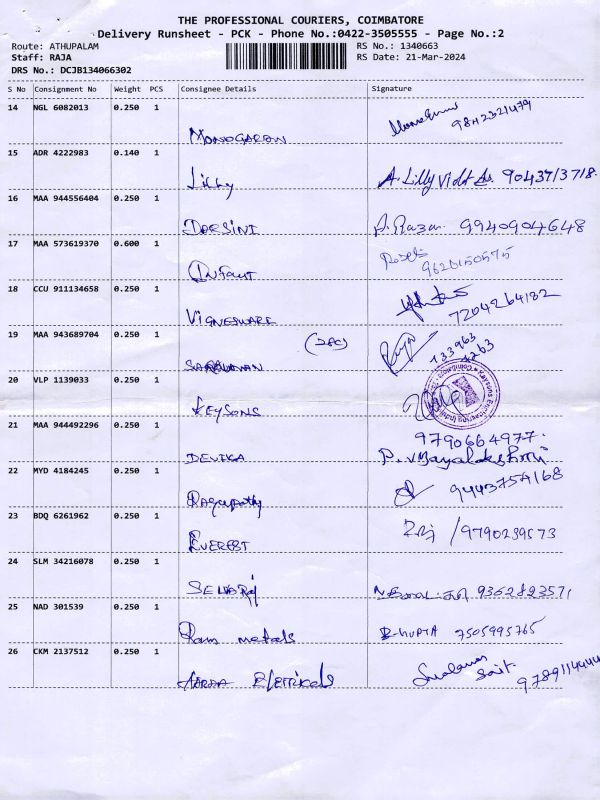 THE PROFESSIONAL COURIERS, COIMBATORE
Delivery Runsheet - PCK - Phone No.:0422-3505555 - Page No.:2
Route: ATHUPALAM RS No.: 1340663
Staff: RAJA RS Date: 21-Mar-2024
DRS No.: DCJB134066302
S No Consignment No Weight PCS Consignee Details Signature
14 NGL 6082013 0.250 1
MONOGARAN 9842321479
15 ADR 4222983 0.140 1
Lilly A. Lilly 9043713718.
16 MAA 944556404 0.250 1
DARSINI 9940904648
17 MAA 573619370 0.600 1
Infant 9620150575
18 CCU 911134658 0.250 1
VIGNESWARE 7204264182
19 MAA 943689704 0.250 1
SARAVANAN Raja
20 VLP 1139033 0.250 1
KEYSONS
21 MAA 944492296 0.250 1
9790664977.
DEVIKA P. vijayalakshmi
22 MYD 4184245 0.250 1
Ragupathy 9443754168
23 BDQ 6261962 0.250 1
EVEREST 9790239573
24 SLM 34216078 0.250 1
SELVARaj 9362823571
25 NAD 301539 0.250 1
Ram metals 7505995765
26 CKM 2137512 0.250 1
Eletricals 9789114444